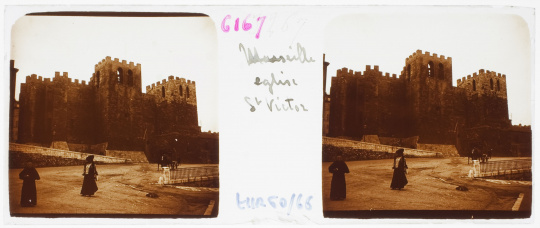 6167
Marseille
église
St Victor
EUR50/66